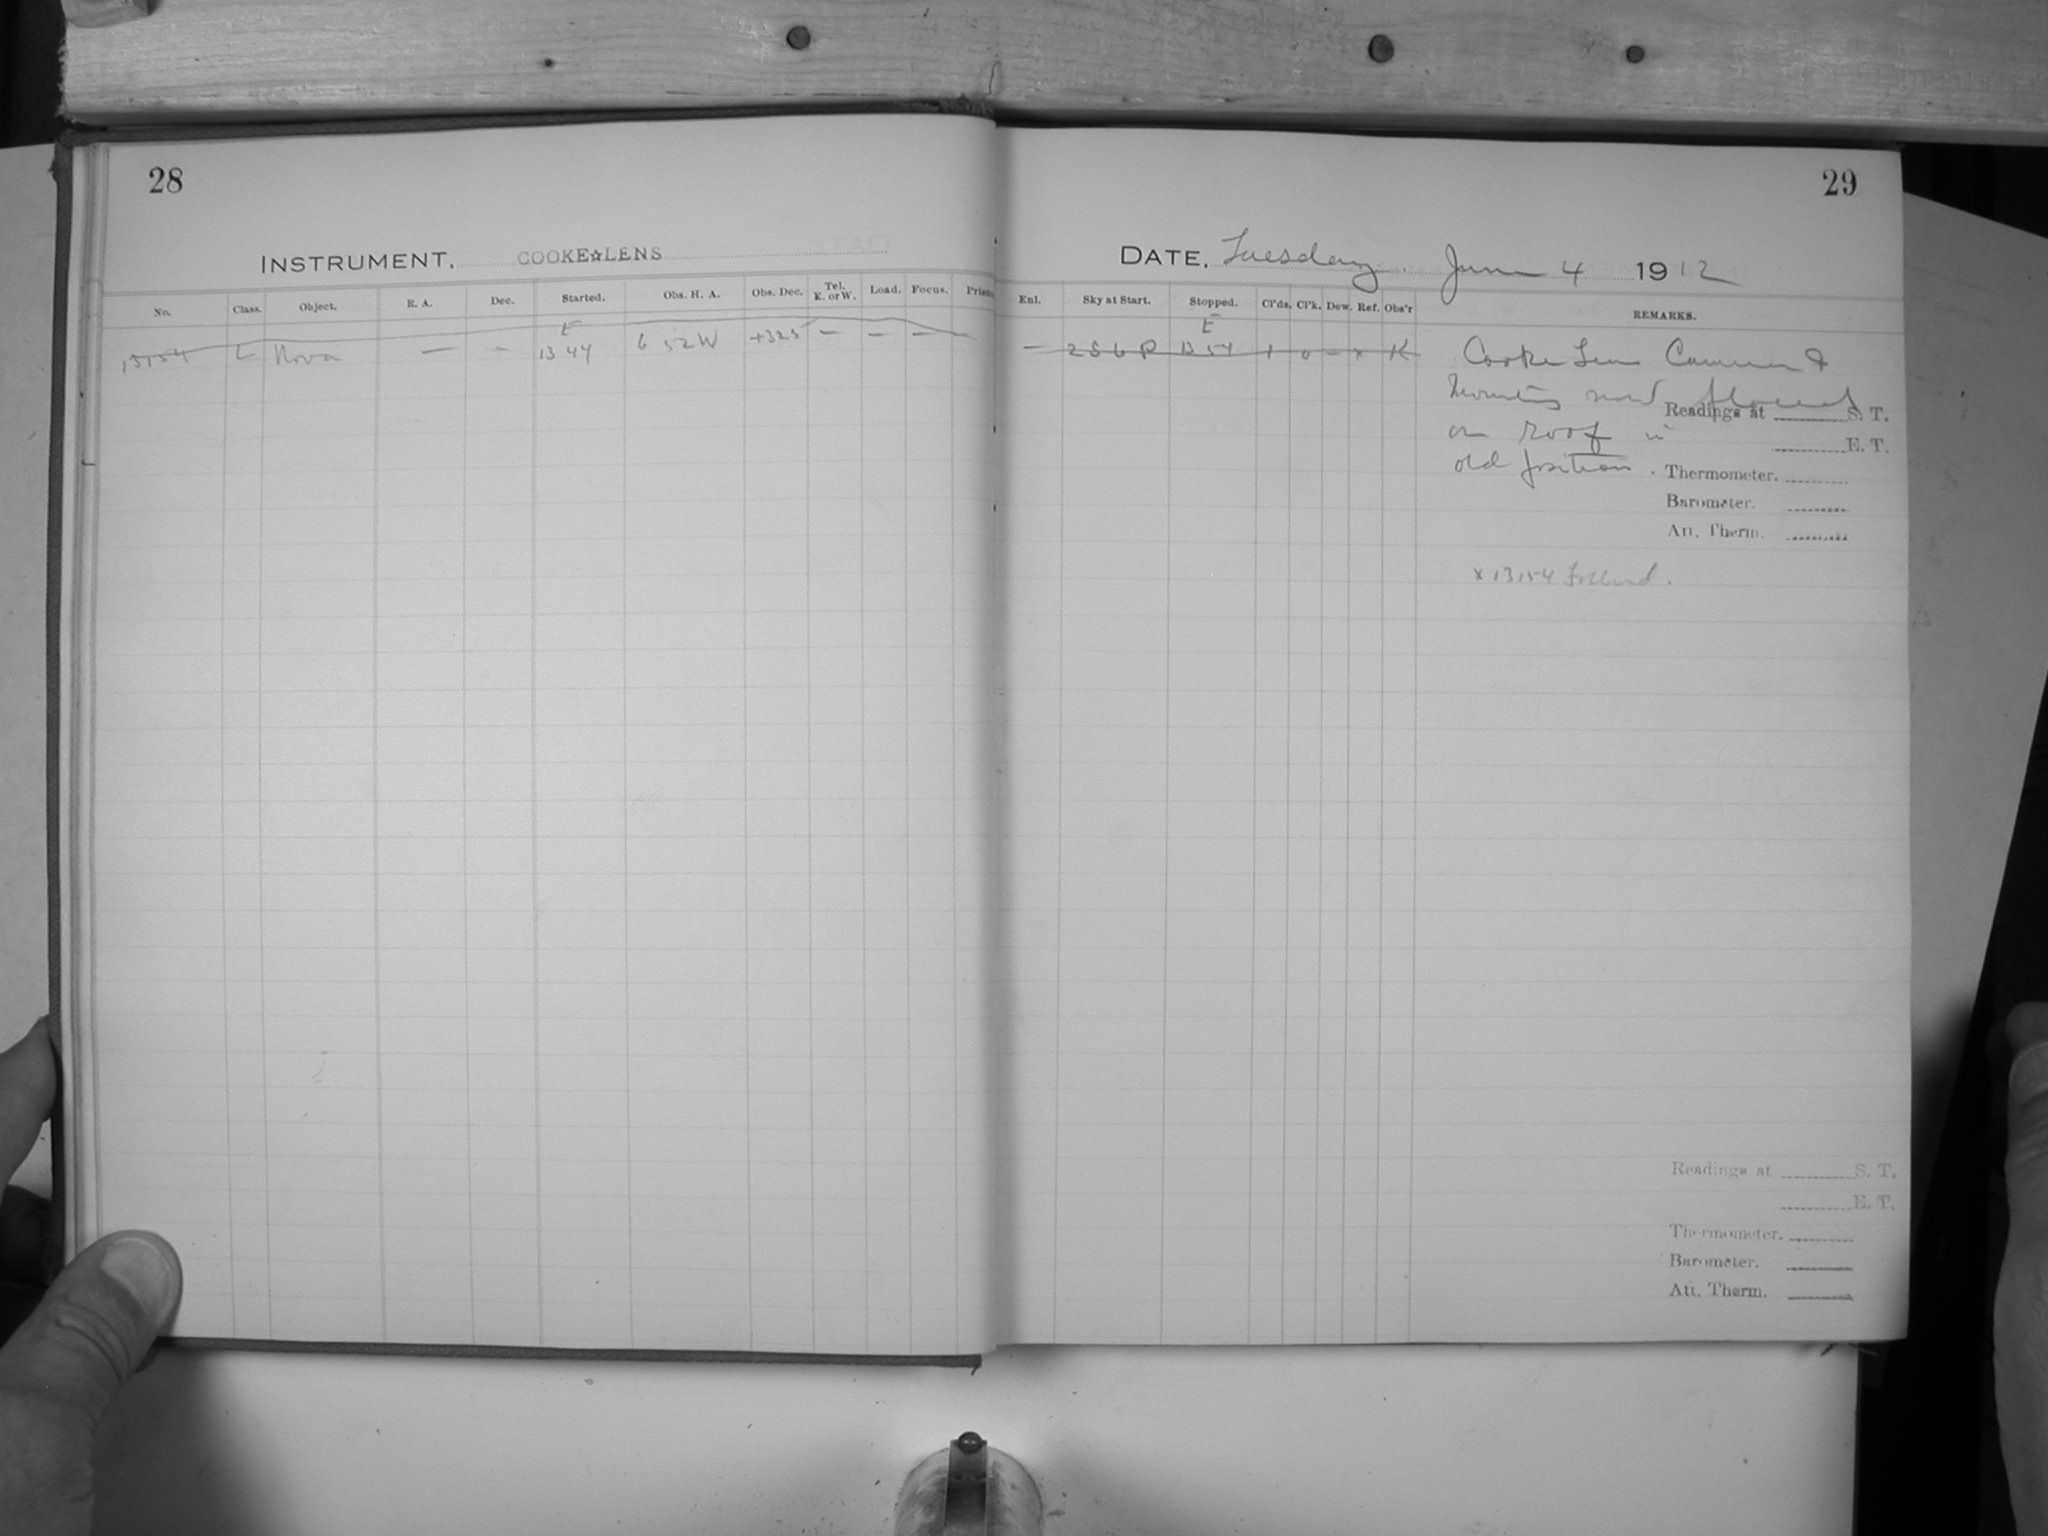 28
29
INSTRUMENT, COOKE☆LENS
DATE, Tuesday. June 4 1912
No. Class. Object. R. A. Dec. Started. Obs. H. A. Obs. Dec. Tel. E. or W. Load. Focus. Prism
Enl. Sky at Start. Stopped. Cl'ds. Cl'k. Dew. Ref. Obs'r REMARKS.
E
13154 L Nova — — 13 44 6 52 W +32.5 — — — —
E
— 2 S 6 P 13 54 1 0 — x K
Cooke Lens Camera &
Mounting now placed
on roof in
old position.
Readings at S. T.
E. T.
Thermometer.
Barometer.
Att. Therm.
x 13154
Readings at S. T.
E. T.
Thermometer.
Barometer.
Att. Therm.